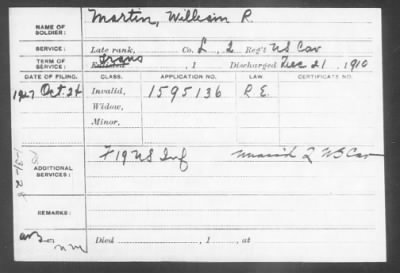 NAME OF SOLDIER: Martin, William R.
SERVICE: Late rank, Co. L, 2 Reg't US Cav
TERM OF SERVICE: Trans Enlisted , 1 Discharged Dec 21, 1910
DATE OF FILING. CLASS. APPLICATION NO. LAW. CERTIFICATE NO.
1927 Oct. 26 Invalid, 1595136 R.E.
Widow,
Minor,
ADDITIONAL SERVICES: F 19 US Inf 2 US Cav
REMARKS:
Died , 1 , at